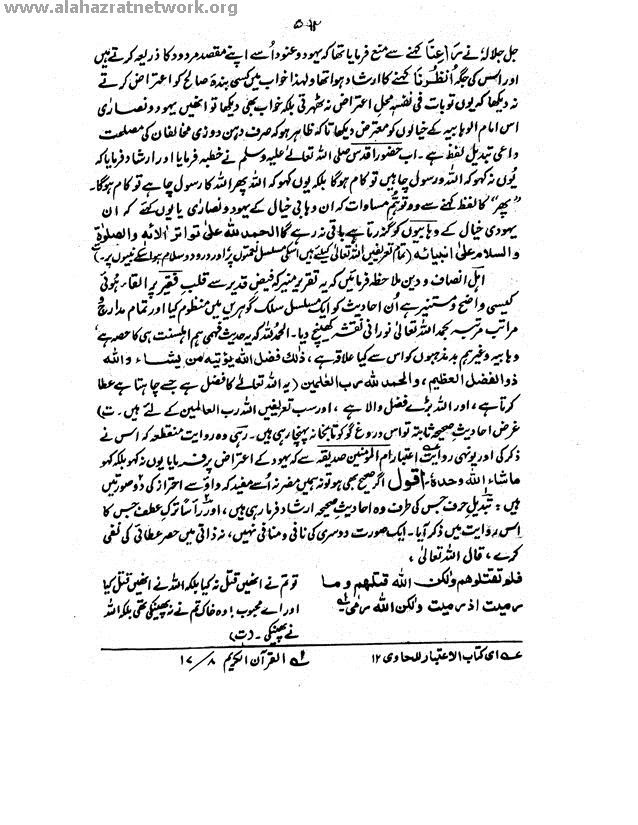 www.alahazratnetwork.org
۵۶۴
جل جلالہٗ نے راعنا کہنے سے منع فرمایا تھا کہ یہود و عنود اُسے اپنے مقصد مردود کا ذریعہ کرتے ہیں
اور اس کی جگہ اُنظُرنا کہنے کا ارشاد ہوا تھا ولہذا خواب میں کسی بندۂ صالح کو اعتراض کرتے
نہ دیکھا کہ یوں تو بات فی نفسہٖ محلِ اعتراض نہ ٹھہرتی بلکہ خواب بھی دیکھا تو انھیں یہود و نصارٰی
اس امام الوہابیہ کے خیالوں کو معترض دیکھا تاکہ ظاہر ہو کہ صرف دہن دوزی مخالفان کی مصلحت
داعی تبدیل لفظ ہے۔ اب حضور اقدس صلی اللہ تعالیٰ علیہ وسلم نے خطبہ فرمایا اور ارشاد فرمایا کہ
یُوں نہ کہو کہ اللہ و رسول چاہیں تو کام ہوگا بلکہ یوں کہو کہ اللہ پھر اللہ کا رسول چاہے تو کام ہوگا۔
"پھر" کا لفظ کہنے سے وہ توہّمِ مساوات کہ ان وہابی خیال کے یہود و نصارٰی یا یوں کہئے کہ ان
یہودی خیال کے وہابیوں کو گزرتا ہے باقی نہ رہے گا الحمد للہ علی تواتر اٰلائہ والصلوٰۃ
والسلام علی انبیائہ (تمام تعریفیں اللہ تعالیٰ کیلئے ہیں اسکی مسلسل نعمتوں پر اور درود و سلام ہو اسکے نبیوں پر۔ت)
اہل انصاف و دین ملاحظہ فرمائیں کہ یہ تقریر منیر کہ فیض قدیر سے قلب فقیر پر القاء ہوئی
کیسی واضح و مستنیر ہے جسے اُن احادیث کو ایک مسلسل سلک گوہریں میں منظوم کیا اور تمام مدارج و
مراتب مرتبہ بحمد اللہ تعالیٰ نورانی نقشہ کھینچ دیا۔ الحمد للہ کہ یہ حدیث فہمی ہم اہلسنت ہی کا حصہ ہے
وہابیہ وغیرہم بد مذہبوں کو اس سے کیا علاقہ ہے، ذٰلک فضل اللہ یؤتیہ من یشاء واللہ
ذوالفضل العظیم، والحمد للہ رب العٰلمین (یہ اللہ تعالیٰ کا فضل ہے جسے چاہتا ہے عطا
کرتا ہے، اور اللہ بڑے فضل والا ہے، اور سب تعریفیں اللہ رب العالمین کے لئے ہیں۔ت)
غرض احادیثِ صحیحہ ثابتہ تو اس دروغ گو کو تا بخانہ پہنچا رہی ہیں۔ رہی وہ روایت منقطعہ کہ اس نے
ذکر کی اور یونہی روایت اعتبار ام المومنین صدیقہ سے کہ یہود کے اعتراض پر فرمایا یوں نہ کہو بلکہ کہو
ماشاء اللہ وحدہٗ۔ اقول اگر صحیح بھی ہو تو نہ ہمیں مضر نہ اُسے مفید کہ واؤ سے احتراز کی دو صورتیں
ہیں: تبدیلِ حرف جس کی طرف وہ احادیث صحیحہ ارشاد فرما رہی ہیں، اور راساً ترکِ عطف جس کا
اس روایت میں ذکر آیا۔ ایک صورت دوسری کی نافی و منافی نہیں، نہ ذاتی میں حصر عطائی کی نفی
کرے، قال اللہ تعالیٰ،
فلم تقتلوھم ولکن اللہ قتلھم وما رمیت اذ رمیت ولکن اللہ رمٰی
تو تم نے انھیں قتل نہ کیا بلکہ اللہ نے انھیں قتل کیا
اور اے محبوب! وہ خاک تم نے نہ پھینکی تھی بلکہ اللہ
نے پھینکی۔ (ت)
عہ ای کتاب الاعتبار للحاوی ۱۲
لہ القرآن الکریم ۸/ ۱۷